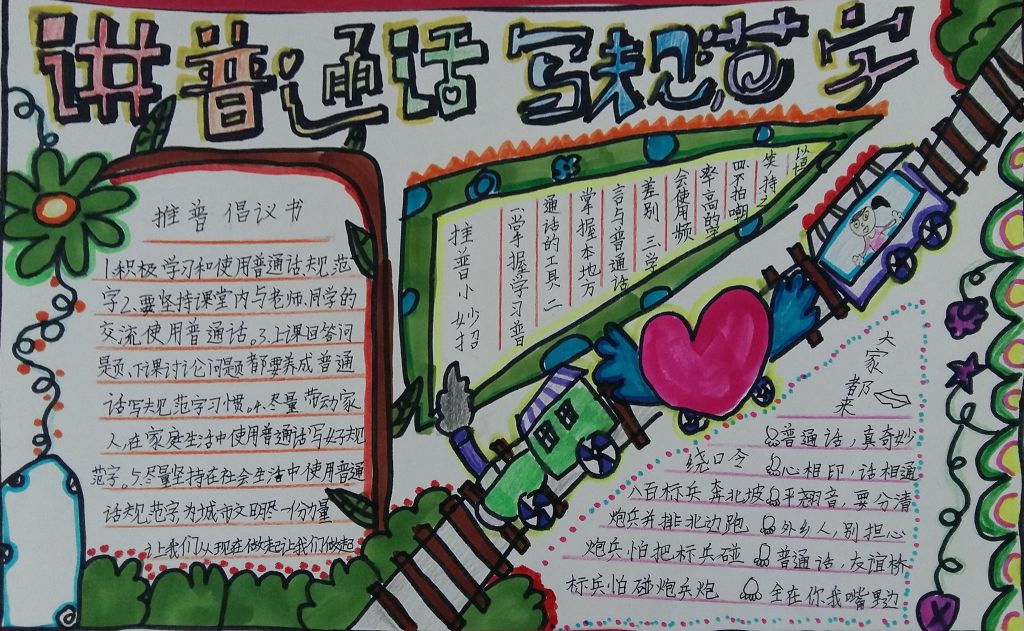 讲普通话 写规范字
推普倡议书
1.积极学习和使用普通话规范
字2.要坚持课堂内与老师.同学的
交流使用普通话.3.上课回答问
题.下课讨论问题都要养成普通
话写规范字习惯.4.尽量带动家
人,在家庭生活中使用普通话写好规
范字.5.尽量坚持在社会生活中使用普通
话规范字,为城市文明尽一份力量
让我们从现在做起让我们做起
推普小妙招
一掌握学习普
通话的工具 二
掌握本地方
言与普通话
差别 三学
会使用频
率高的字
四不怕嘲
笑持之
以恒
大家都来
普通话,真奇妙
绕口令 心相印,话相通
八百标兵奔北坡 平翘音,要分清
炮兵并排北边跑 外乡人,别担心
炮兵怕把标兵碰 普通话,友谊桥
标兵怕碰炮兵炮 全在你我嘴里边